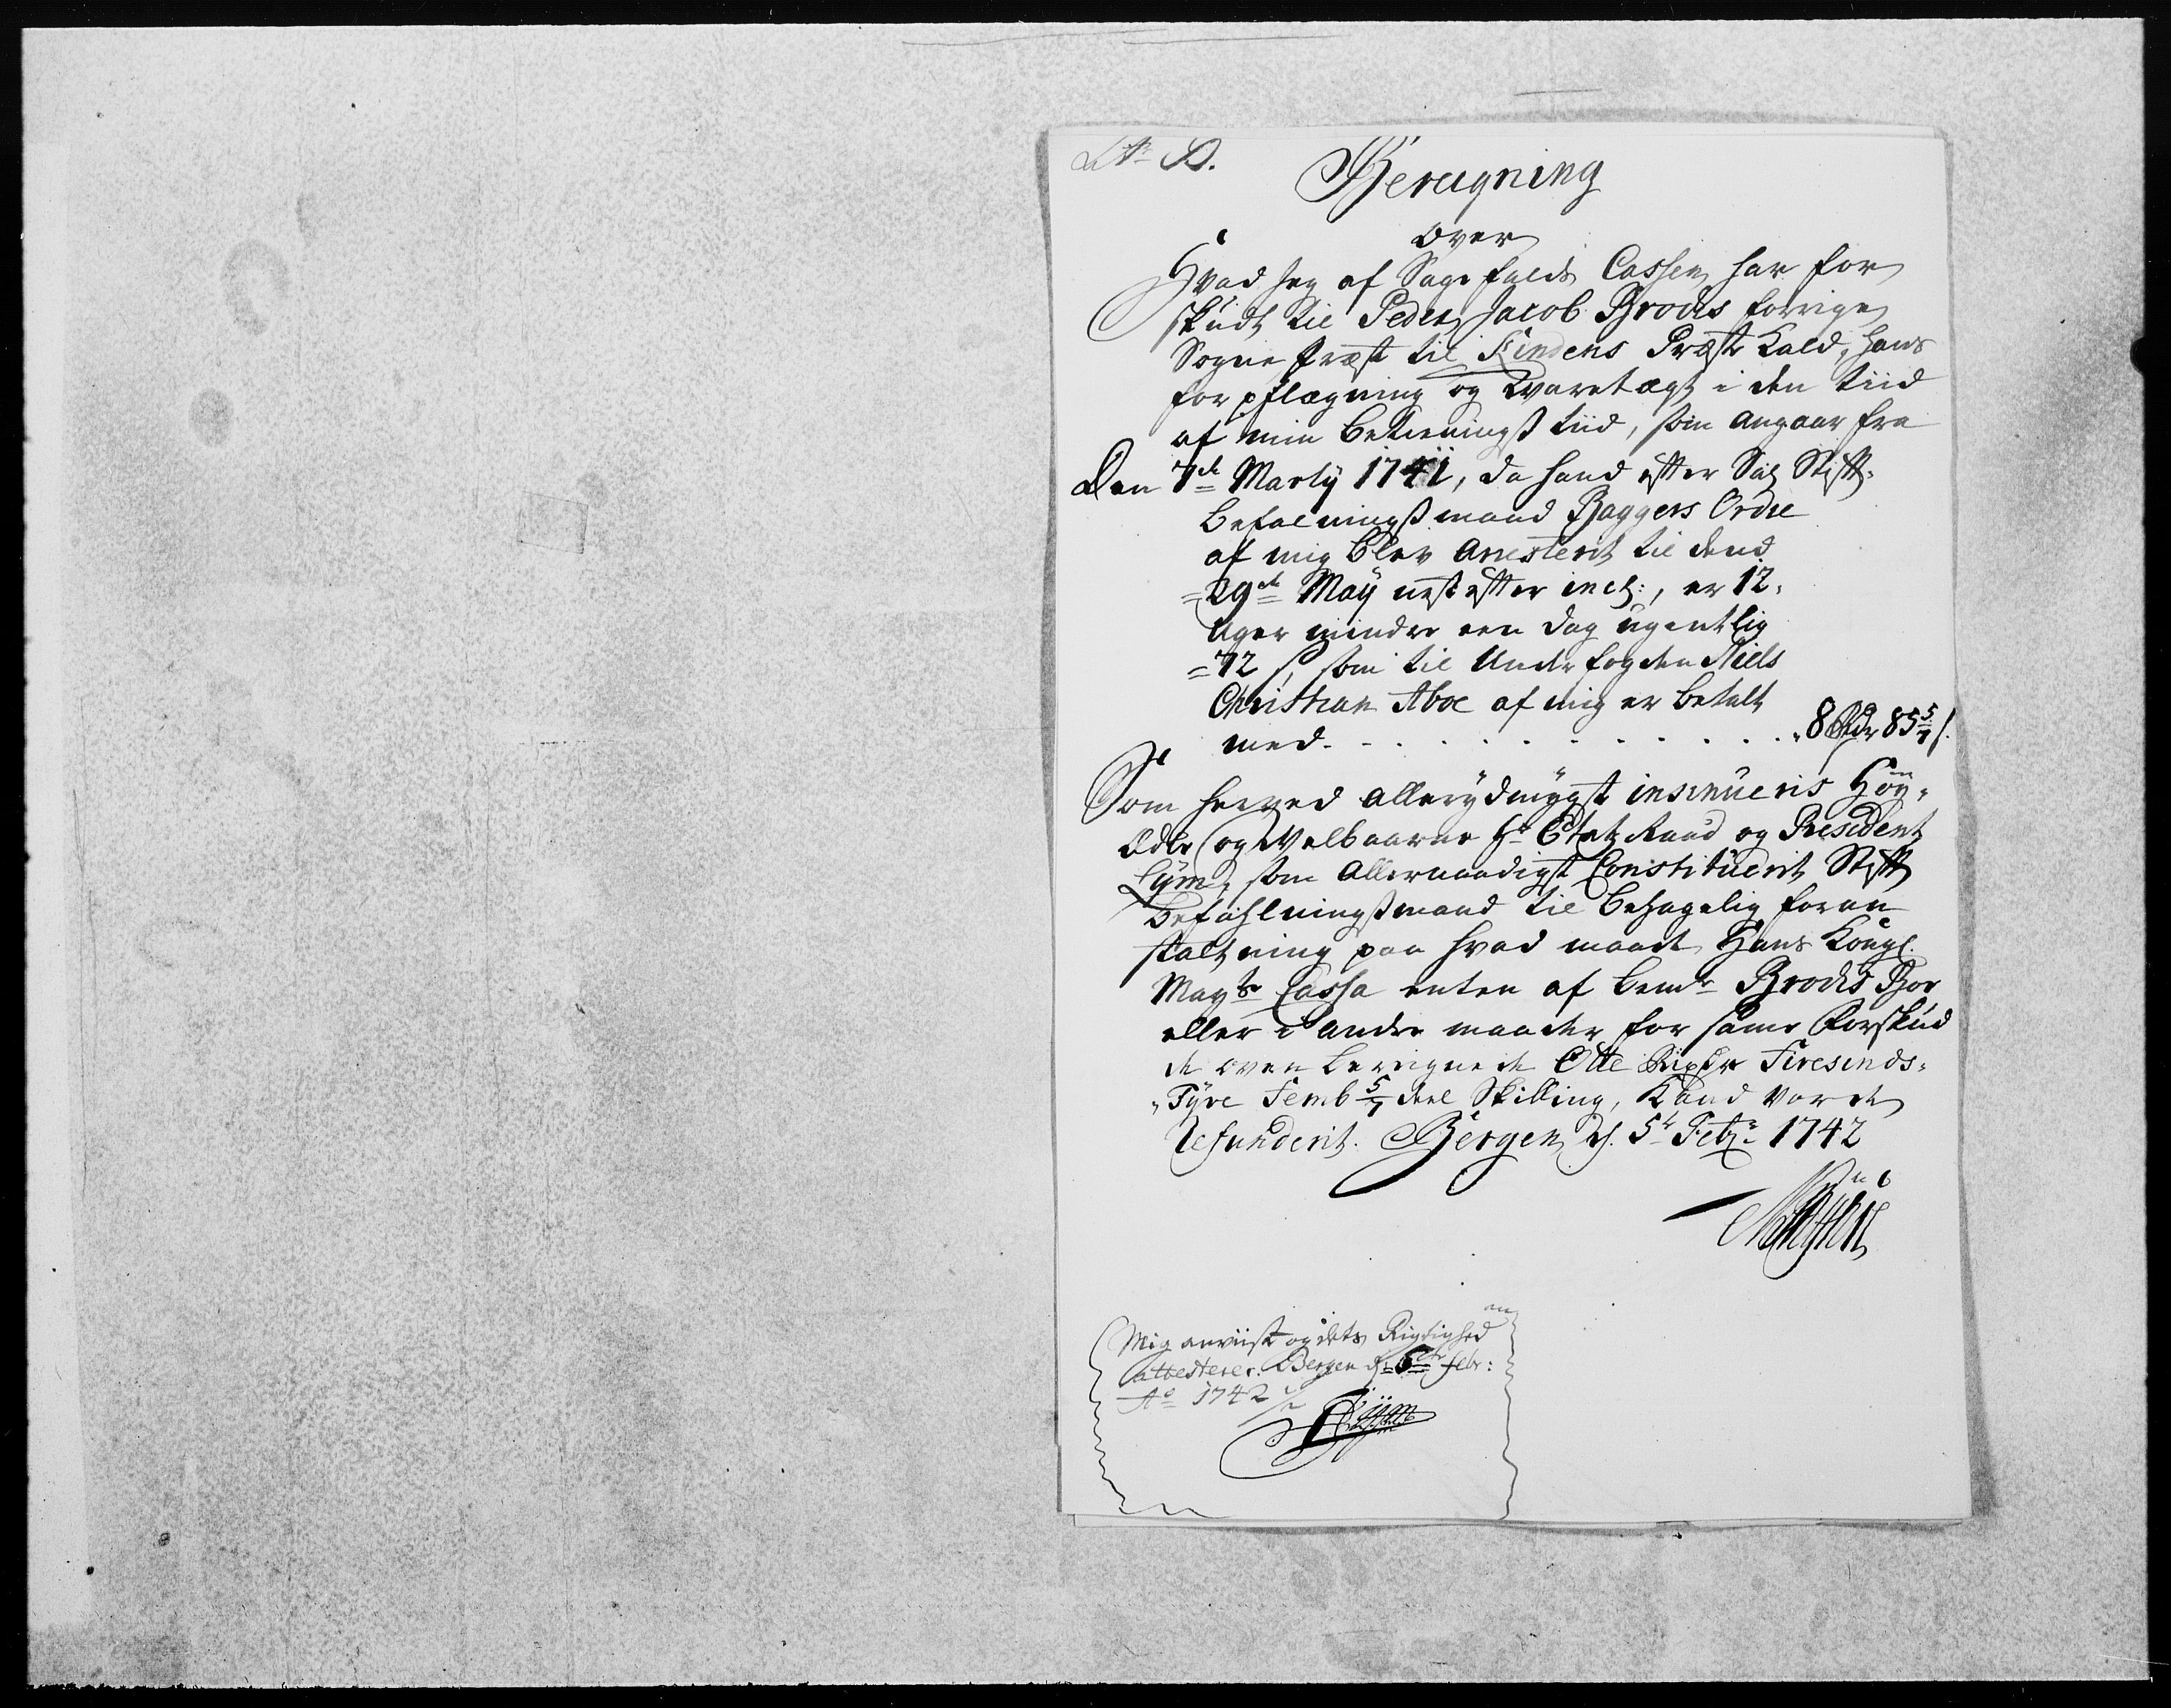 Lit: D.
Beregning
over
Hvad Jeg af Sagefalds Cassen har for
skudt til Peder Jacob Brochs forrige
Sogne Præst til Kindens Præste Kald, hans
forpflægning og Waretægt i den tiid
af min betieningß tiid, som angaar fra
Den 7de Marty 1741, da hand efter Sal Stift-
befalningsmand Baggers Ordre
af mig blev Arresterit til dend
29de May nest efter incl:, er 12
uger mindre een dag ugentlig
72 s, som til Underfogden Niels
Christian Aboe af mig er betalt
med . . . . . . . . . . . . 8 Rdr 85 5/7 s.
Som herved allerydmygst insinueris Høy-
Ædle og Velbaarne Hr Etatz Raad og President
Lÿm, som Allernaadigst Constituerit Stift
befahlningsmand til behagelig foran
staltning paa hvad maade Hans Kongl.
Mayts Cassa enten af bemte Brochs Boe
eller i andre maader for samme Forskud
de oven beregnede Otte Rixdr Firesinds-
Tyve Femb 5/7 deel Skilling, Kand vorde
Refunderit. Bergen d. 5te Febr 1742
Mig anviist og dets Rigtighed
attesterer. Bergen d. 6te Febr:
Ao 1742
Lÿm